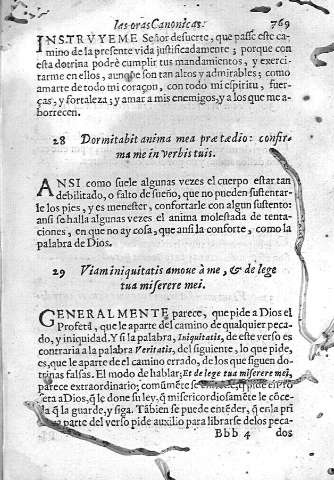 las oras Canonicas. 769
INSTRVYEME Señor desuerte, que passe este ca-
mino de la presente vida justificadamente; porque con
esta dotrina podrè cumplir tus mandamientos, y exerci-
tarme en ellos, aunque son tan altos y admirables; como
amarte de todo mi coraçon, con todo mi espiritu, fuer-
ças, y fortaleza; y amar a mis enemigos, y a los que me a-
borrecen.
28 Dormitabit anima mea præ tædio: confir
ma me in verbis tuis.
ANSI como suele algunas vezes el cuerpo estar tan
debilitado, o falto de sueño, que no pueden sustentar-
le los pies, y es menester, confortarle con algun sustento:
ansi se halla algunas vezes el anima molestada de tenta-
ciones, en que no ay cosa, que ansi la conforte, como la
palabra de Dios.
29 Viam iniquitatis amoue à me, & de lege
tua miserere mei.
GENERALMENTE parece, que pide a Dios el
Profeta, que le aparte del camino de qualquier peca-
do, y iniquidad. Y si la palabra, Iniquitatis, de este verso es
contraria a la palabra Veritatis, del siguiente, lo que pide,
es, que le aparte de el camino errado, de los que siguen do-
trinas falsas. El modo de hablar; Et de lege tua miserere mei,
parece extraordinario; comũmẽte se q̃ pide en ro
seta a Dios, q̃ le done su ley. q̃ misericordiosamẽte le cõce-
la q̃ la guarde, y siga. Tãbien se puede entẽder, q̃ en la pri
parte del verso pide auxilio para librarse delos peca-
Bbb 4 dos